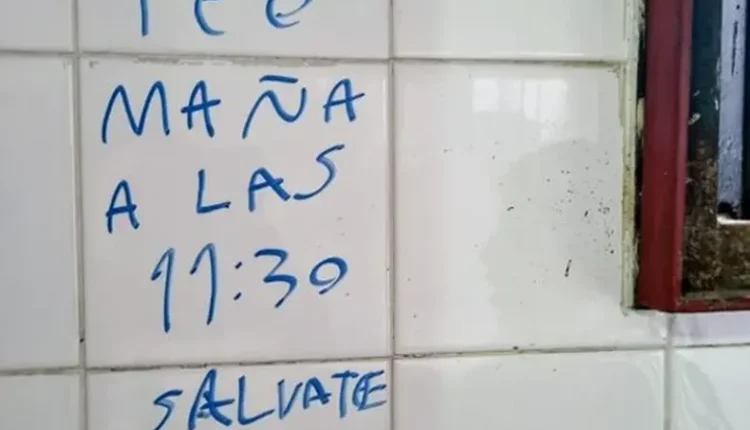 MAÑA
A LAS
11:30
SALVATE